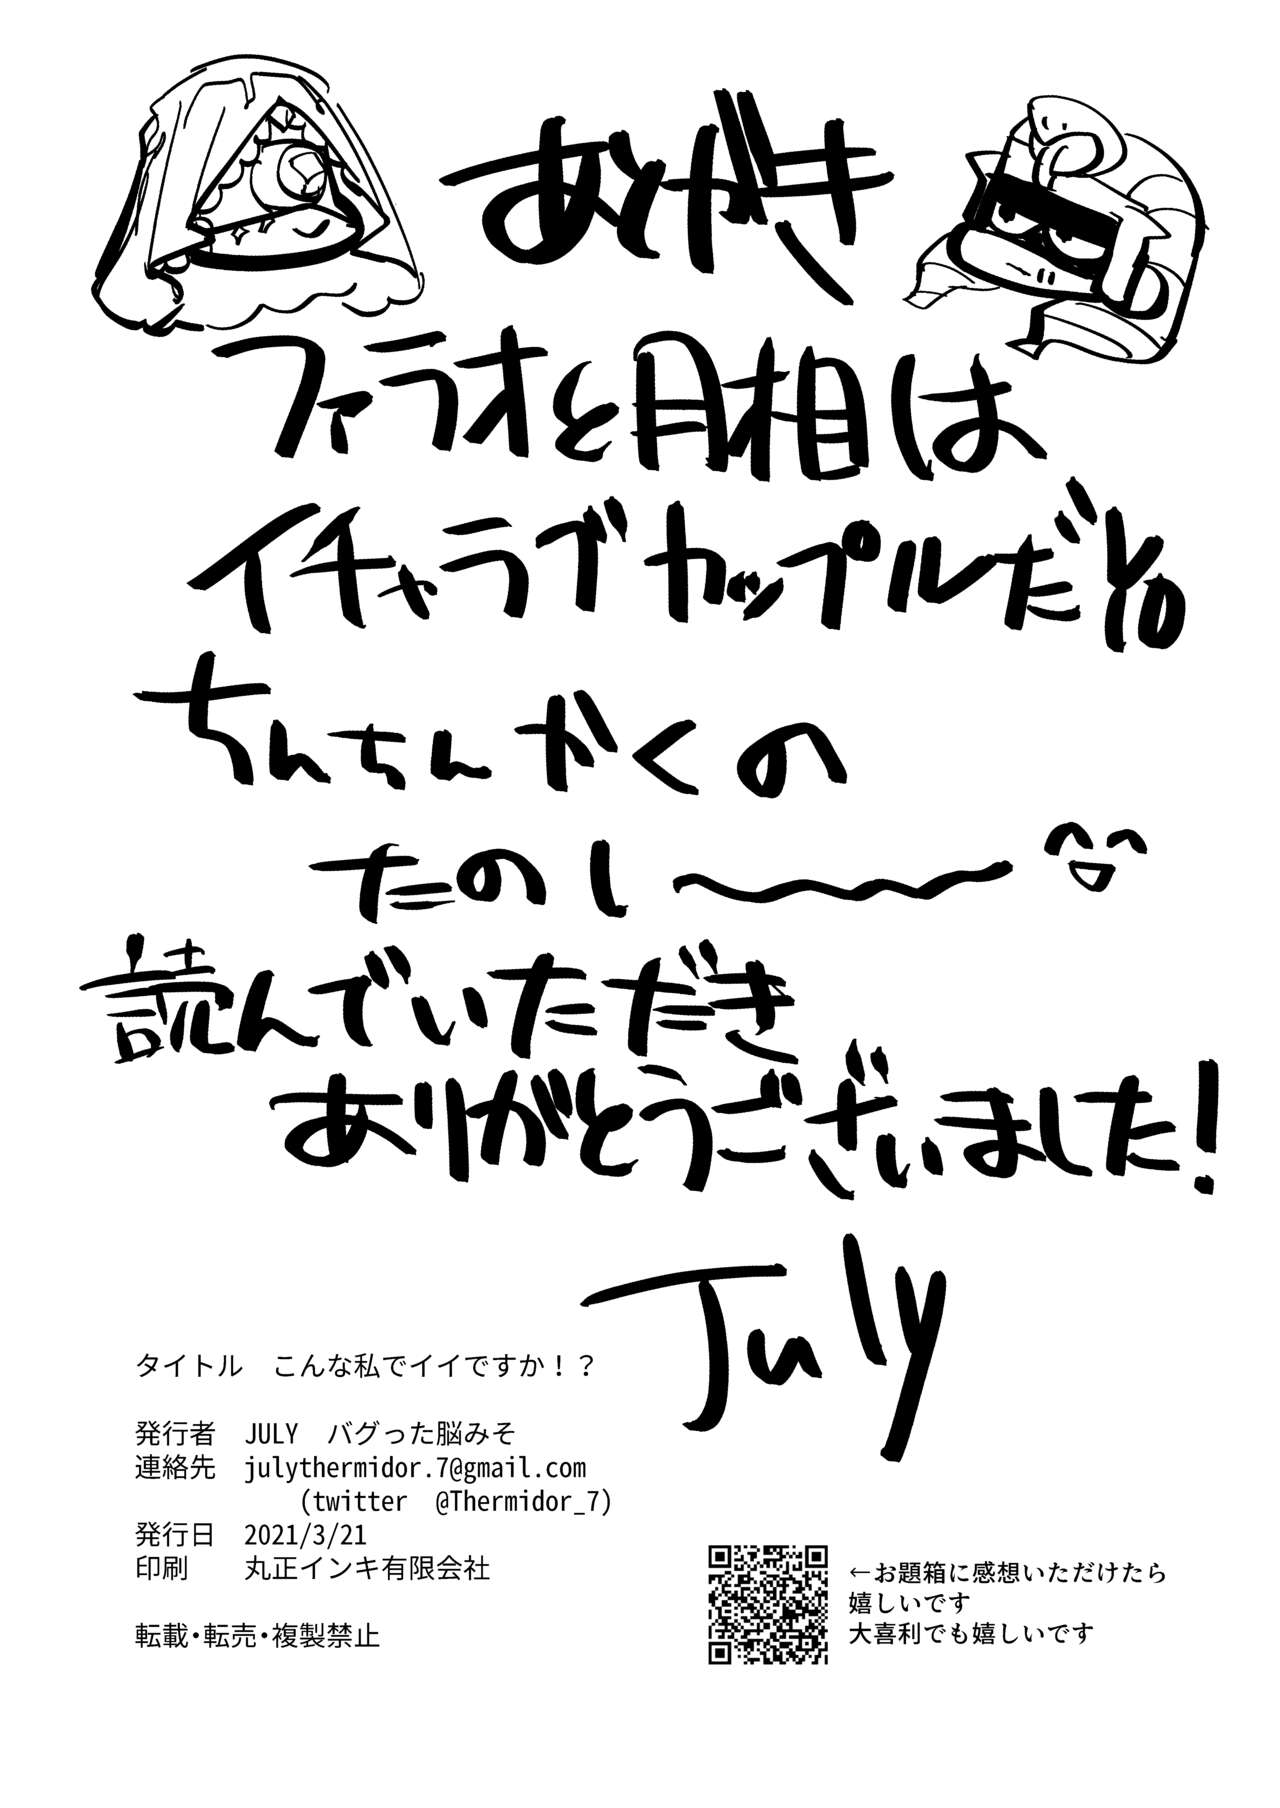 あとがき
ファラオと月相は
イチャラブカップルだYO
ちんちんかくの
たのし〜〜
読んでいただき
ありがとうございました!
July
タイトル　こんな私でイイですか！？
発行者　JULY　バグった脳みそ
連絡先　julythermidor.7@gmail.com
(twitter　@Thermidor_7)
発行日　2021/3/21
印刷　　丸正インキ有限会社
転載・転売・複製禁止
←お題箱に感想いただけたら
嬉しいです
大喜利でも嬉しいです